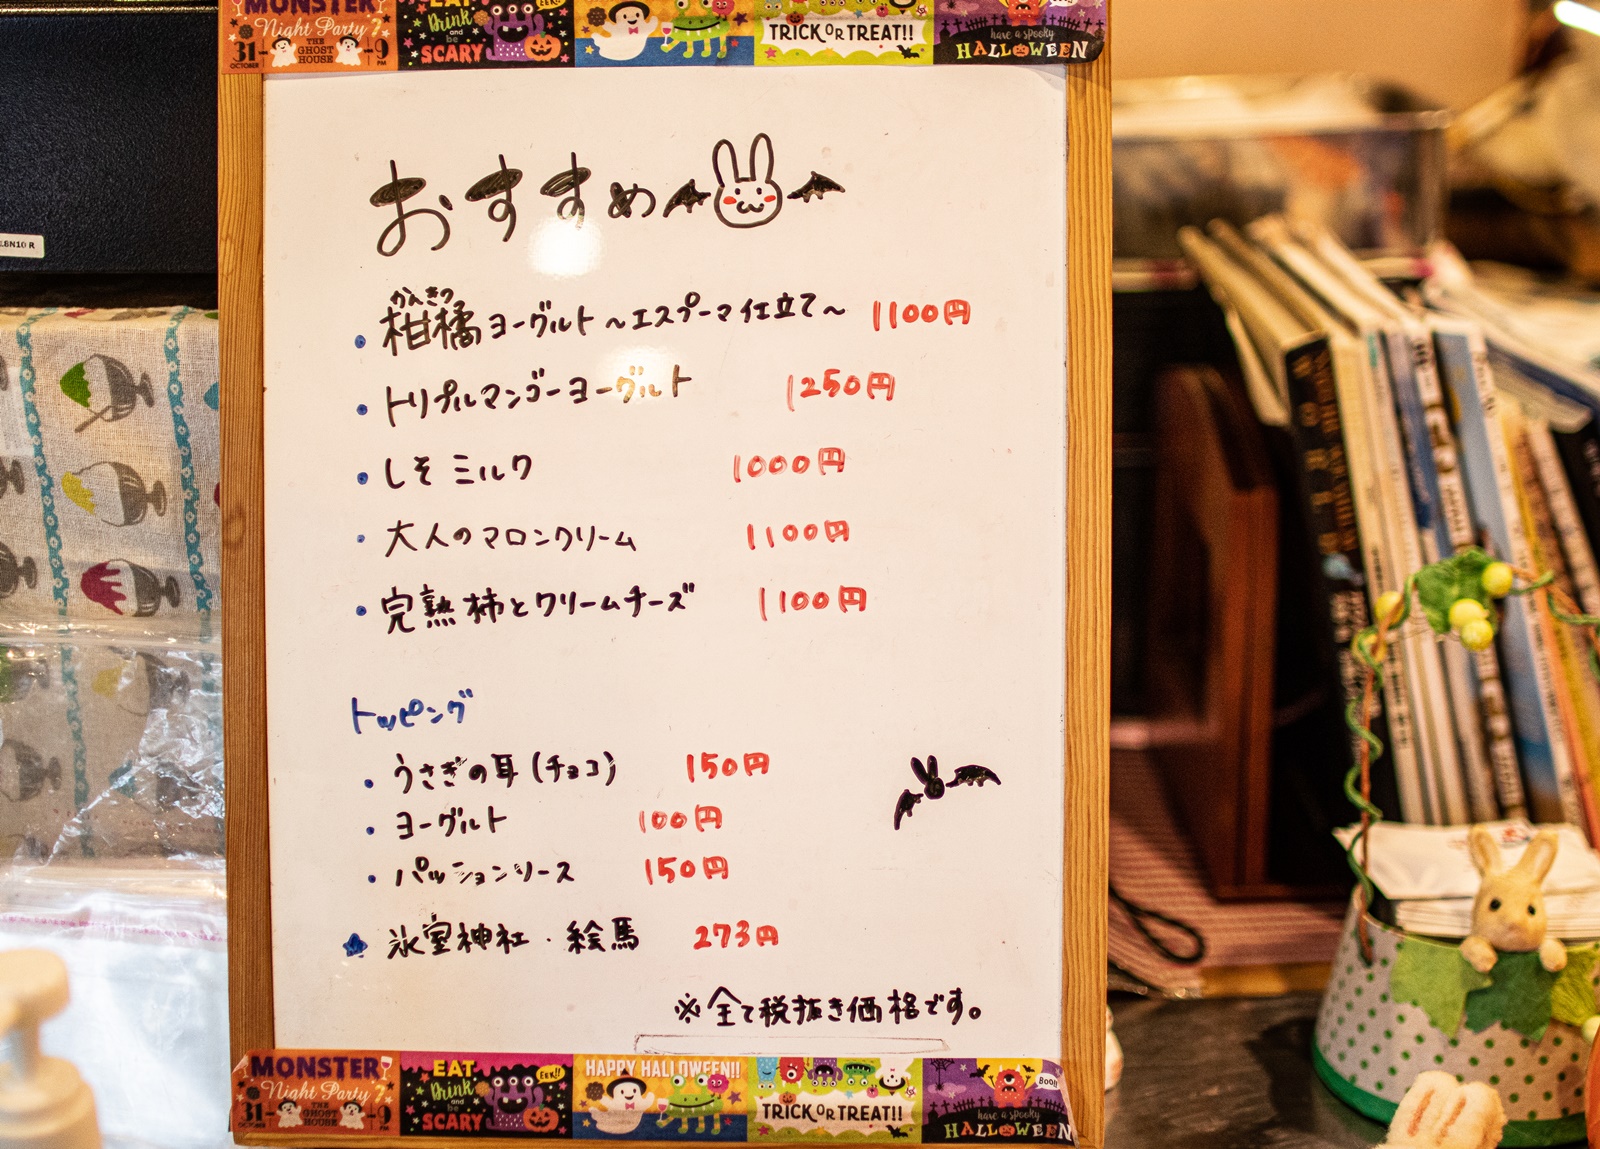 MONSTER
Night Party 7
31 OCTOBER THE GHOST HOUSE 9 PM
EAT
Drink
and be
SCARY
EEK!!
TRICK OR TREAT!!
have a spooky
HALLOWEEN
おすすめ
かんきつ
・柑橘ヨーグルト〜エスプーマ仕立て〜 1100円
・トリプルマンゴーヨーグルト 1250円
・しそミルク 1000円
・大人のマロンクリーム 1100円
・完熟柿とクリームチーズ 1100円
トッピング
・うさぎの耳(チョコ) 150円
・ヨーグルト 100円
・パッションソース 150円
★氷室神社・絵馬 273円
※全て税抜き価格です。
MONSTER
Night Party 7
31 OCTOBER THE GHOST HOUSE 9 PM
EAT
Drink
and be
SCARY
EEK!!
HAPPY HALLOWEEN!!
TRICK OR TREAT!!
BOO!!
have a spooky
HALLOWEEN